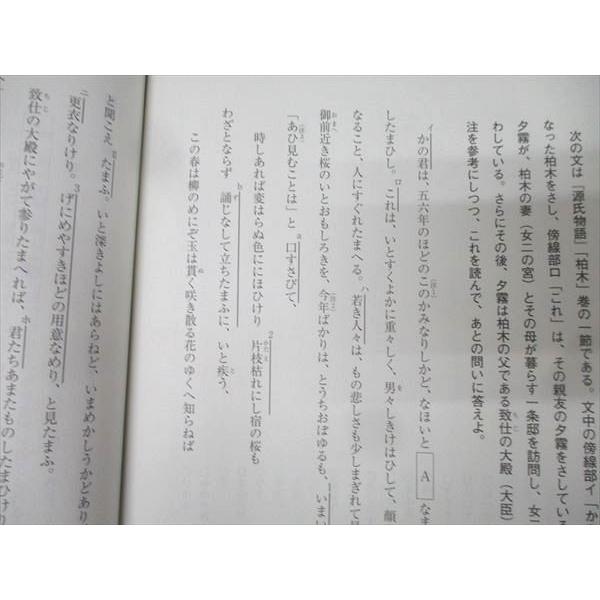 次の文は『源氏物語』「柏木」巻の一節である。文中の傍線部イ「か
なった柏木をさし、傍線部ロ「これ」は、その親友の夕霧をさしている
夕霧が、柏木の妻（女二の宮）とその母が暮らす一条邸を訪問し、女二
わしている。さらにその後、夕霧は柏木の父である致仕の大殿（大臣）
注を参考にしつつ、これを読んで、あとの問いに答えよ。
かの君は、五六年のほどのこのかみなりしかど、なほいと A なま
したまひし。これは、いとすくよかに重々しく、男々しきけはひして、顔
なること、人にすぐれたまへる。若き人々は、もの悲しさも少しまぎれて見
御前近き桜のいとおもしろきを、今年ばかりは、とうちおぼゆるも、いまい
「あひ見むことは」と口すさびて、
時しあれば変はらぬ色ににほひけり 片枝枯れにし宿の桜も
わざとならず誦じなして立ちたまふに、いと疾う、
この春は柳のめにぞ玉は貫く咲き散る花のゆくへ知らねば
と聞こえたまふ。いと深きよしにはあらねど、いまめかしうかどあり
更衣なりけり。げにめやすきほどの用意なめり、と見たまふ。
致仕の大殿にやがて参りたまへれば、君たちあまたものしたまひけり